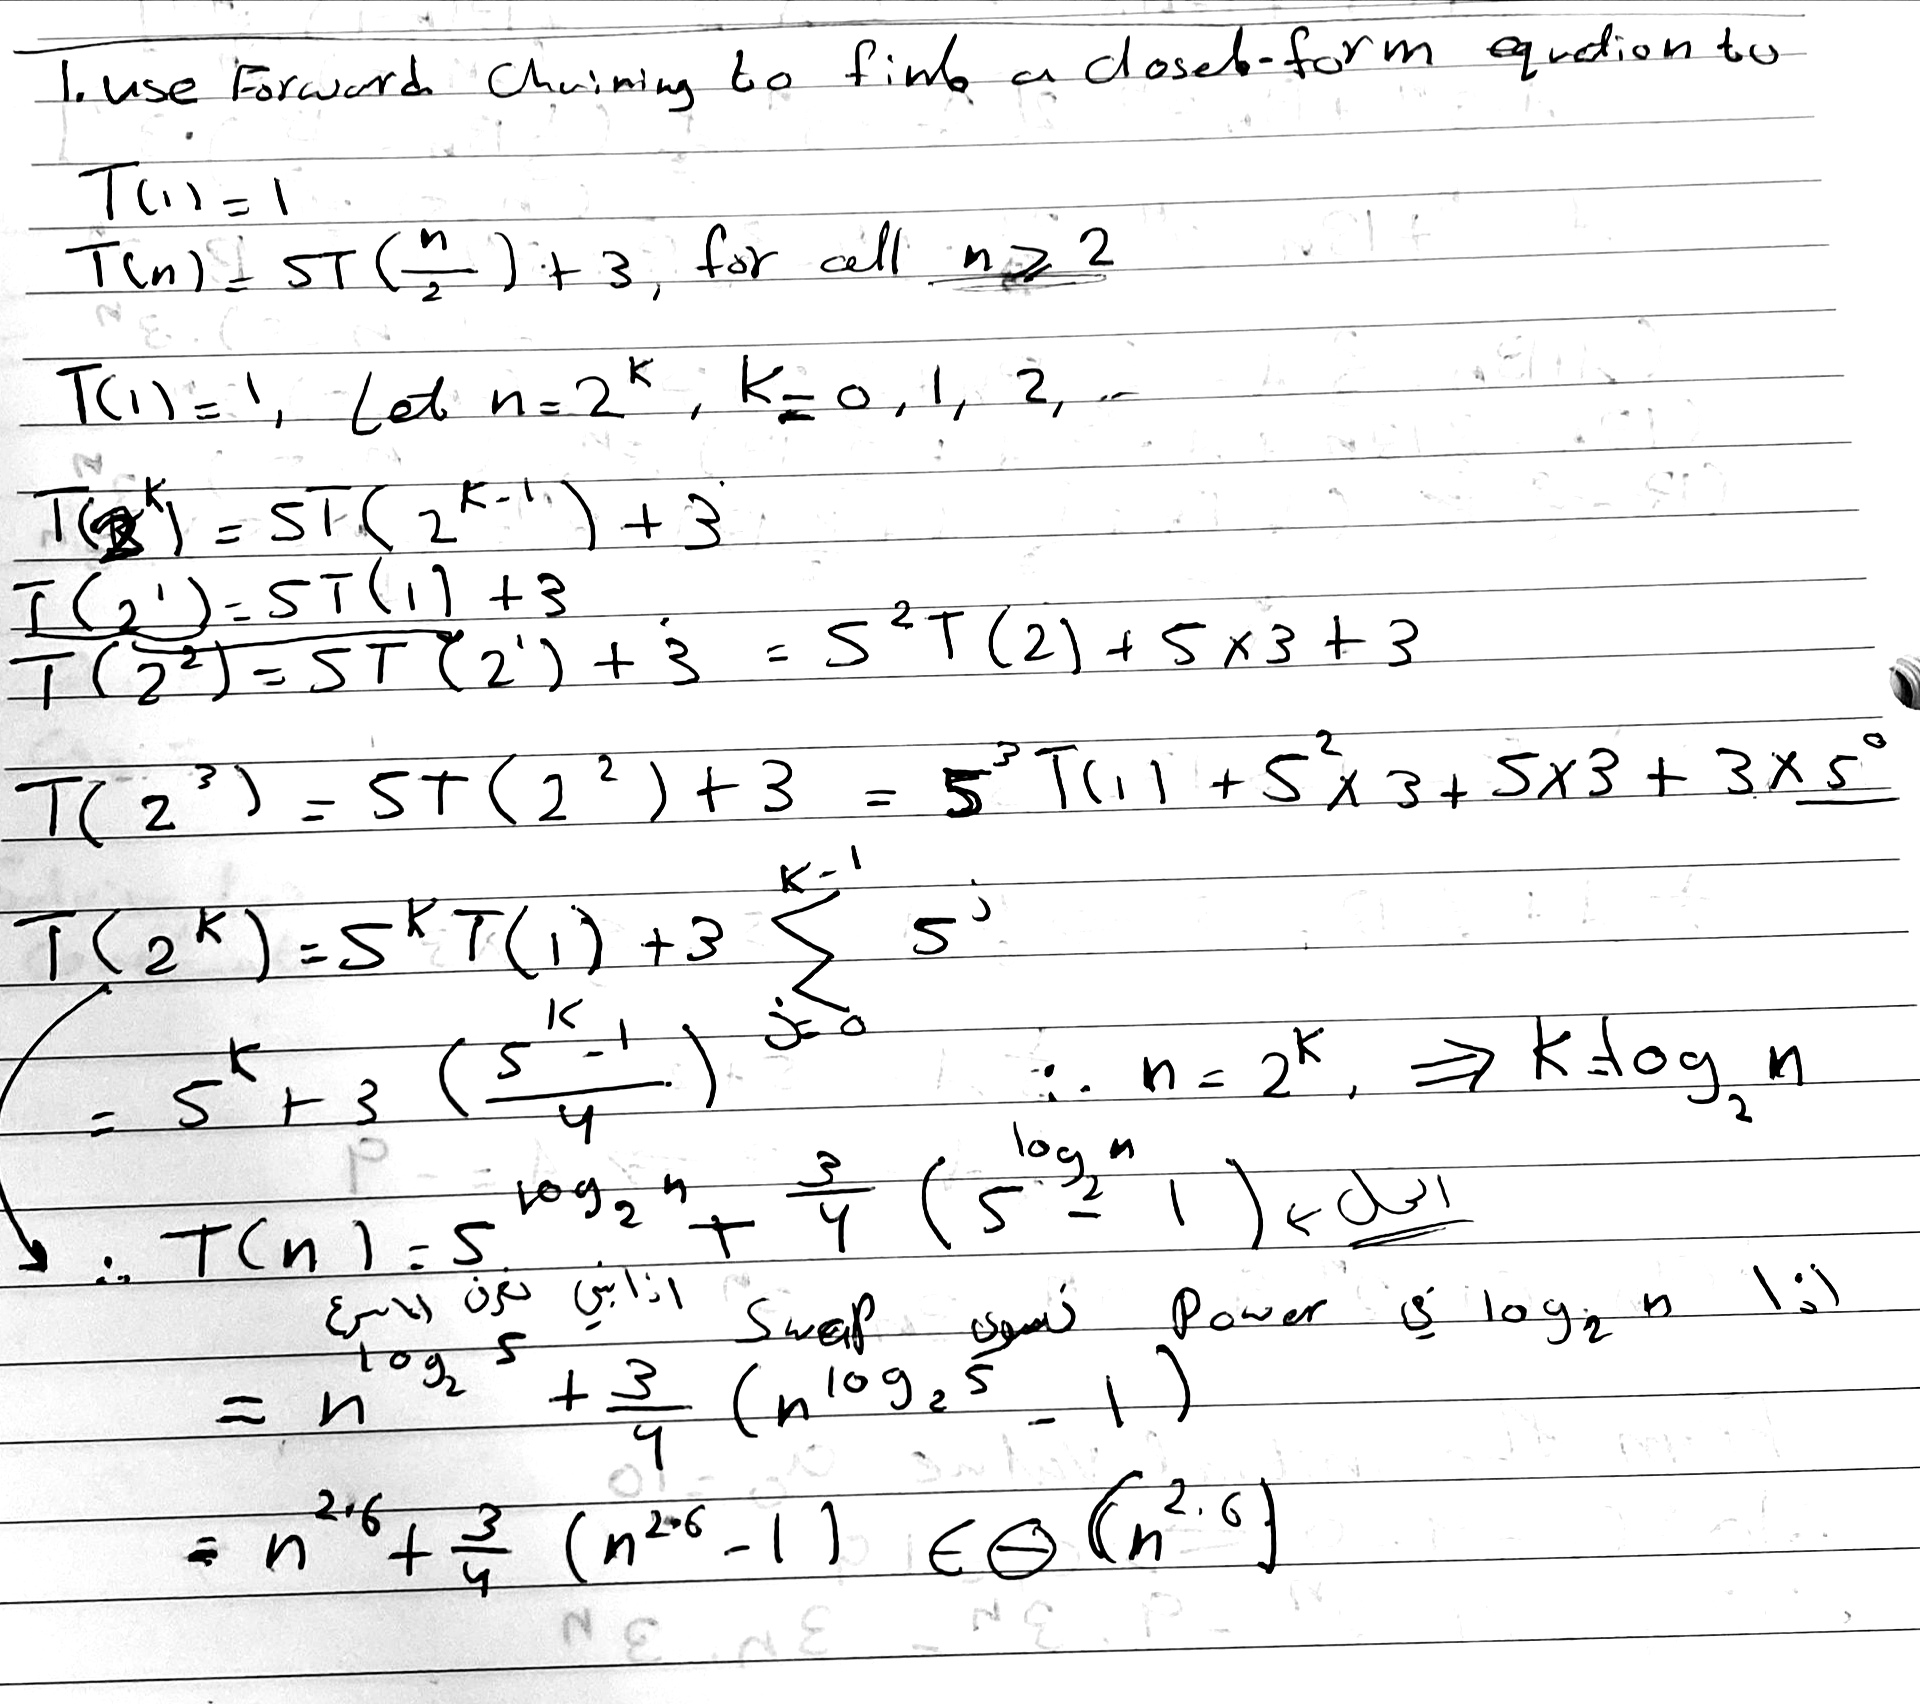 1. use Forward Chaining to find a closed-form equation to
T(1) = 1
T(n) = 5T(n/2) + 3, for all n ≥ 2
T(1) = 1, Let n = 2^k, K = 0, 1, 2, ..
T(2^k) = 5T(2^(k-1)) + 3
T(2^1) = 5T(1) + 3
T(2^2) = 5T(2^1) + 3 = 5^2 T(2) + 5×3 + 3
T(2^3) = 5T(2^2) + 3 = 5^3 T(1) + 5^2×3 + 5×3 + 3×5^0
T(2^k) = 5^k T(1) + 3 ∑_{j=0}^{k-1} 5^j
= 5^k + 3((5^k - 1)/4) ∴ n = 2^k, ⇒ K = log_2 n
∴ T(n) = 5^(log_2 n) + 3/4 (5^(log_2 n) - 1) ← الحل
اذا log_2 n في Power نسوي Swap اذا نعرف الاسرع
= n^(log_2 5) + 3/4 (n^(log_2 5) - 1)
= n^2.6 + 3/4 (n^2.6 - 1) ∈ Θ(n^2.6)